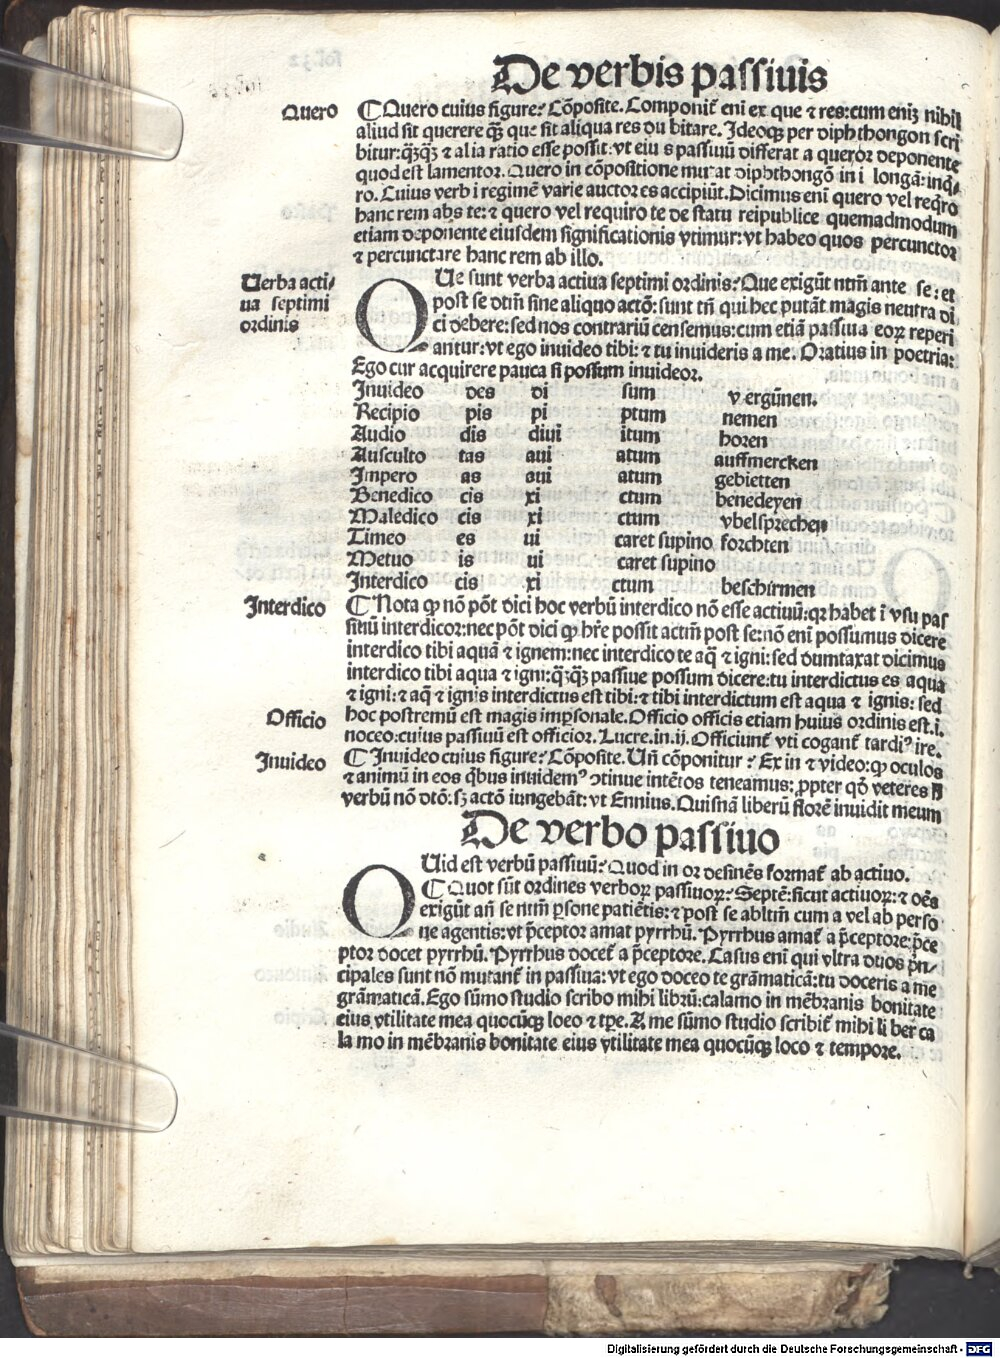 De verbis passiuis
Quero
¶ Quero cuius figure? Cõposite. Componit᷑ eni ex que ⁊ res: cum enim nihil
aliud sit querere q̃ȝ que sit aliqua res du bitare. Ideoqȝ per diphthongon scri
bitur: q̃ȝq̃ȝ ⁊ alia ratio esse possit: vt eiu s passiuũ differat a queror deponente
quod est lamentor. Quero in cõpositione mutat diphthongõ in i longã: inq̃/
ro. Cuius verb i regimẽ varie auctores accipiũt. Dicimus eni quero vel reqͥro
hanc rem abs te: ⁊ quero vel requiro te de statu reipublice quemadmodum
etiam deponente eiusdem significationis vtimur: vt habeo quos percunctor
⁊ percunctare hanc rem ab illo.
Verba acti/
ua septimi
ordinis
QUe sunt verba actiua septimi ordinis? Que exigũt ntm̃ ante se: et
post se dtm̃ sine aliquo actõ: sunt tñ qui hec putãt magis neutra di
ci debere: sed nos contrariũ censemus: cum etiã passiua eoꝝ reperi
antur: vt ego inuideo tibi: ⁊ tu inuideris a me. Oratius in poetria:
Ego cur acquirere pauca si possum inuideor.
Inuideo des di sum vergũnen
Recipio pis pi ptum nemen
Audio dis diui itum horen
Ausculto tas aui atum auffmercken
Impero as aui atum gebietten
Benedico cis xi ctum benedeyen
Maledico cis xi ctum vbelsprechen
Timeo es ui caret supino forchten
Metuo is ui caret supino
Interdico cis xi ctum beschirmen
Interdico
¶ Nota ꝙ nõ põt dici hoc verbũ interdico nõ esse actiuũ: qꝛ habet ĩ vsu pas
siuũ interdicor: nec põt dici ꝙ hr̃e possit actm̃ post se: nõ eni possumus dicere
interdico tibi aquã ⁊ ignem: nec interdico te aq̃ ⁊ igni: sed dumtaxat dicimus
interdico tibi aqua ⁊ igni: q̃ȝq̃ȝ passiue possum dicere: tu interdictus es aqua
⁊ igni: ⁊ aq̃ ⁊ ignis interdictus est tibi: ⁊ tibi interdictum est aqua ⁊ ignis: sed
Officio
hoc postremũ est magis imꝑsonale. Officio officis etiam huius ordinis est .i.
noceo: cuius passiuũ est officior. Lucre. in .ij. Officiunt᷑ vti cogant᷑ tardiꝰ ire.
Inuideo
¶ Inuideo cuius figure? Cõposite. Uñ cõponitur? Ex in ⁊ video: ꝙ oculos
⁊ animũ in eos qͥbus inuidemꝰ ↄtinue intẽtos teneamus: ꝓpter qd̃ veteres h̃
verbũ nõ dtõ: sȝ actõ iungebãt: vt Ennius. Quisnã liberũ florẽ inuidit meum
De verbo passiuo
QUid est verbũ passiuũ? Quod in or desinẽs format᷑ ab actiuo.
¶ Quot sũt ordines verboꝝ passiuoꝝ? Septẽ: sicut actiuoꝝ: ⁊ oẽs
exigũt añ se ntm̃ ꝑsone patiẽtis: ⁊ post se abltm̃ cum a vel ab perso
ne agentis: vt p̃ceptor amat pyrrhũ. Pyrrhus amat᷑ a p̃ceptore: p̃ce
ptor docet pyrrhũ. Pyrrhus docet᷑ a p̃ceptore. Casus eni qui vltra duos pͥn/
cipales sunt nõ mutant᷑ in passiua: vt ego doceo te grãmaticã: tu doceris a me
grãmaticã. Ego sũmo studio scribo mihi librũ: calamo in mẽbranis bonitate
eius vtilitate mea quocũqȝ loco ⁊ tꝑe. A me sũmo studio scribit᷑ mihi li ber ca
la mo in mẽbranis bonitate eius vtilitate mea quocũqȝ loco ⁊ tempore.
Digitalisierung gefördert durch die Deutsche Forschungsgemeinschaft - DFG